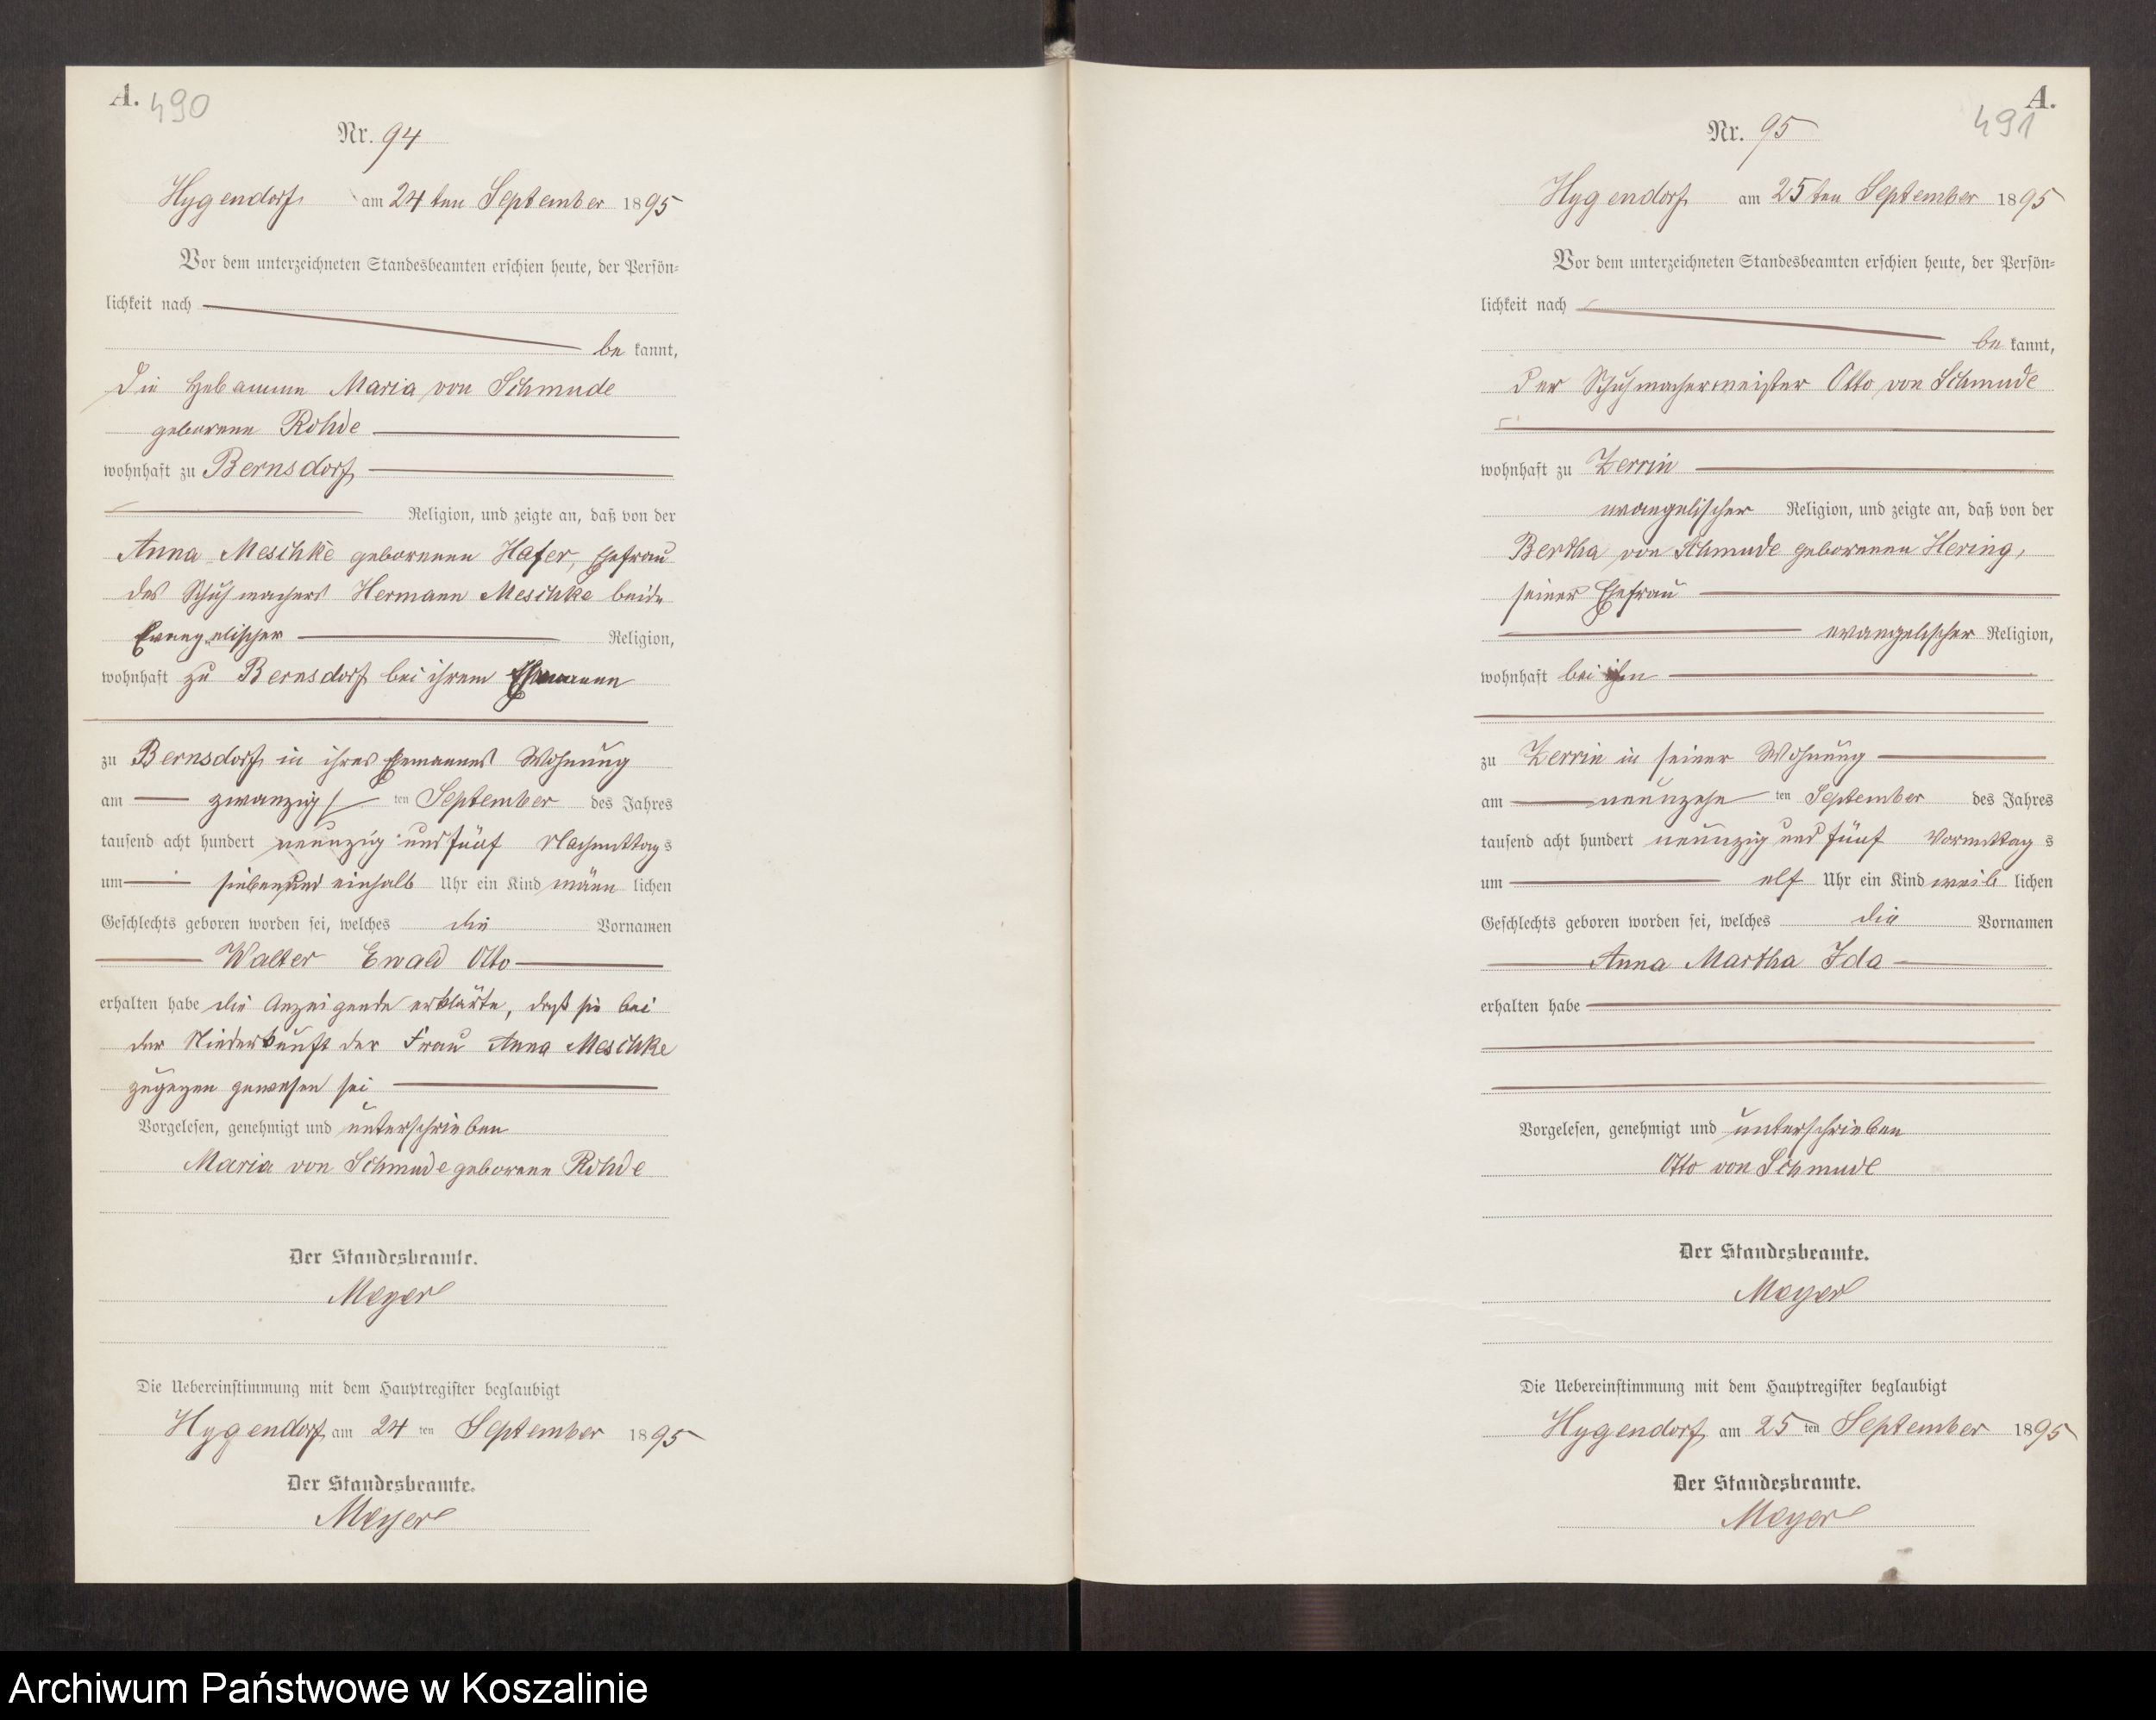 A. 490
Nr. 94
Hygendorf am 24 ten September 1895
Vor dem unterzeichneten Standesbeamten erschien heute, der Persön=
lichkeit nach
be kannt,
die Hebamme Maria von Schmude
geborene Rohde
wohnhaft zu Bernsdorf
Religion, und zeigte an, daß von der
Anna Meschke geborenen Hafer, Ehefrau
des Schuhmachers Hermann Meschke beide
Evangelischer Religion,
wohnhaft zu Bernsdorf bei ihrem Ehemanne
zu Bernsdorf in ihres Ehemannes Wohnung
am zwanzig ten September des Jahres
tausend acht hundert neunzig und fünf Nachmittag s
um sieben und einhalb Uhr ein Kind männ lichen
Geschlechts geboren worden sei, welches die Vornamen
Walter Ewald Otto
erhalten habe die Anzeigende erklärte, daß sie bei
der Niederkunft der Frau Anna Meschke
zugegen gewesen sei
Vorgelesen, genehmigt und unterschrieben
Maria von Schmude geborene Rohde
Der Standesbeamte.
Meyer
Die Uebereinstimmung mit dem Hauptregister beglaubigt
Hygendorf am 24 ten September 1895
Der Standesbeamte.
Meyer
A.
491
Nr. 95
Hygendorf am 25 ten September 1895
Vor dem unterzeichneten Standesbeamten erschien heute, der Persön=
lichkeit nach
be kannt,
der Schuhmachermeister Otto von Schmude
wohnhaft zu Zerrin
evangelischer Religion, und zeigte an, daß von der
Bertha von Schmude geborenen Hering,
seiner Ehefrau
evangelischer Religion,
wohnhaft bei ihm
zu Zerrin in seiner Wohnung
am neunzehn ten September des Jahres
tausend acht hundert neunzig und fünf Vormittag s
um elf Uhr ein Kind weib lichen
Geschlechts geboren worden sei, welches die Vornamen
Anna Martha Ida
erhalten habe
Vorgelesen, genehmigt und unterschrieben
Otto von Schmude
Der Standesbeamte.
Meyer
Die Uebereinstimmung mit dem Hauptregister beglaubigt
Hygendorf am 25 ten September 1895
Der Standesbeamte.
Meyer
Archiwum Państwowe w Koszalinie